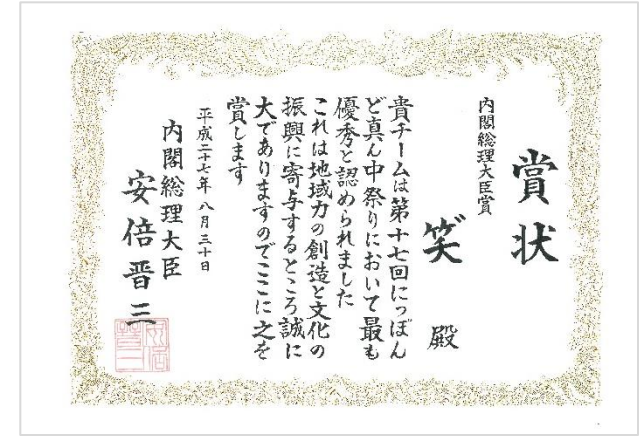 賞状
内閣総理大臣賞
笑 殿
貴チームは第十七回にっぽん
ど真ん中祭りにおいて最も
優秀と認められました
これは地域力の創造と文化の
振興に寄与するところ誠に
大でありますのでここに之を
賞します
平成二十七年 八月三十日
内閣総理大臣
安倍晋三